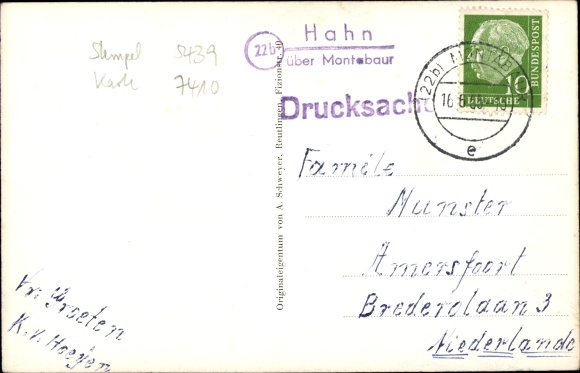 Stempel 5439
Karte 7410
22b
Hahn
über Montabaur
Drucksache
DEUTSCHE
BUNDESPOST
10
(22b)
16.8.
e
Familie
Munster
Amersfoort
Brederolaan 3
Niederlande
Vr. Groeten
K. V. Hoeÿen
Originaleigentum von A. Schweyer, Reutlingen, Fizionstr. 40